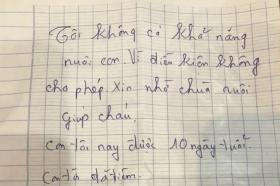 Tôi không có khả năng
nuôi con. Vì điều kiện không
cho phép xin nhờ chùa nuôi
giúp cháu.
con tôi nay được 10 ngày tuổi.
con tôi đã tiêm.